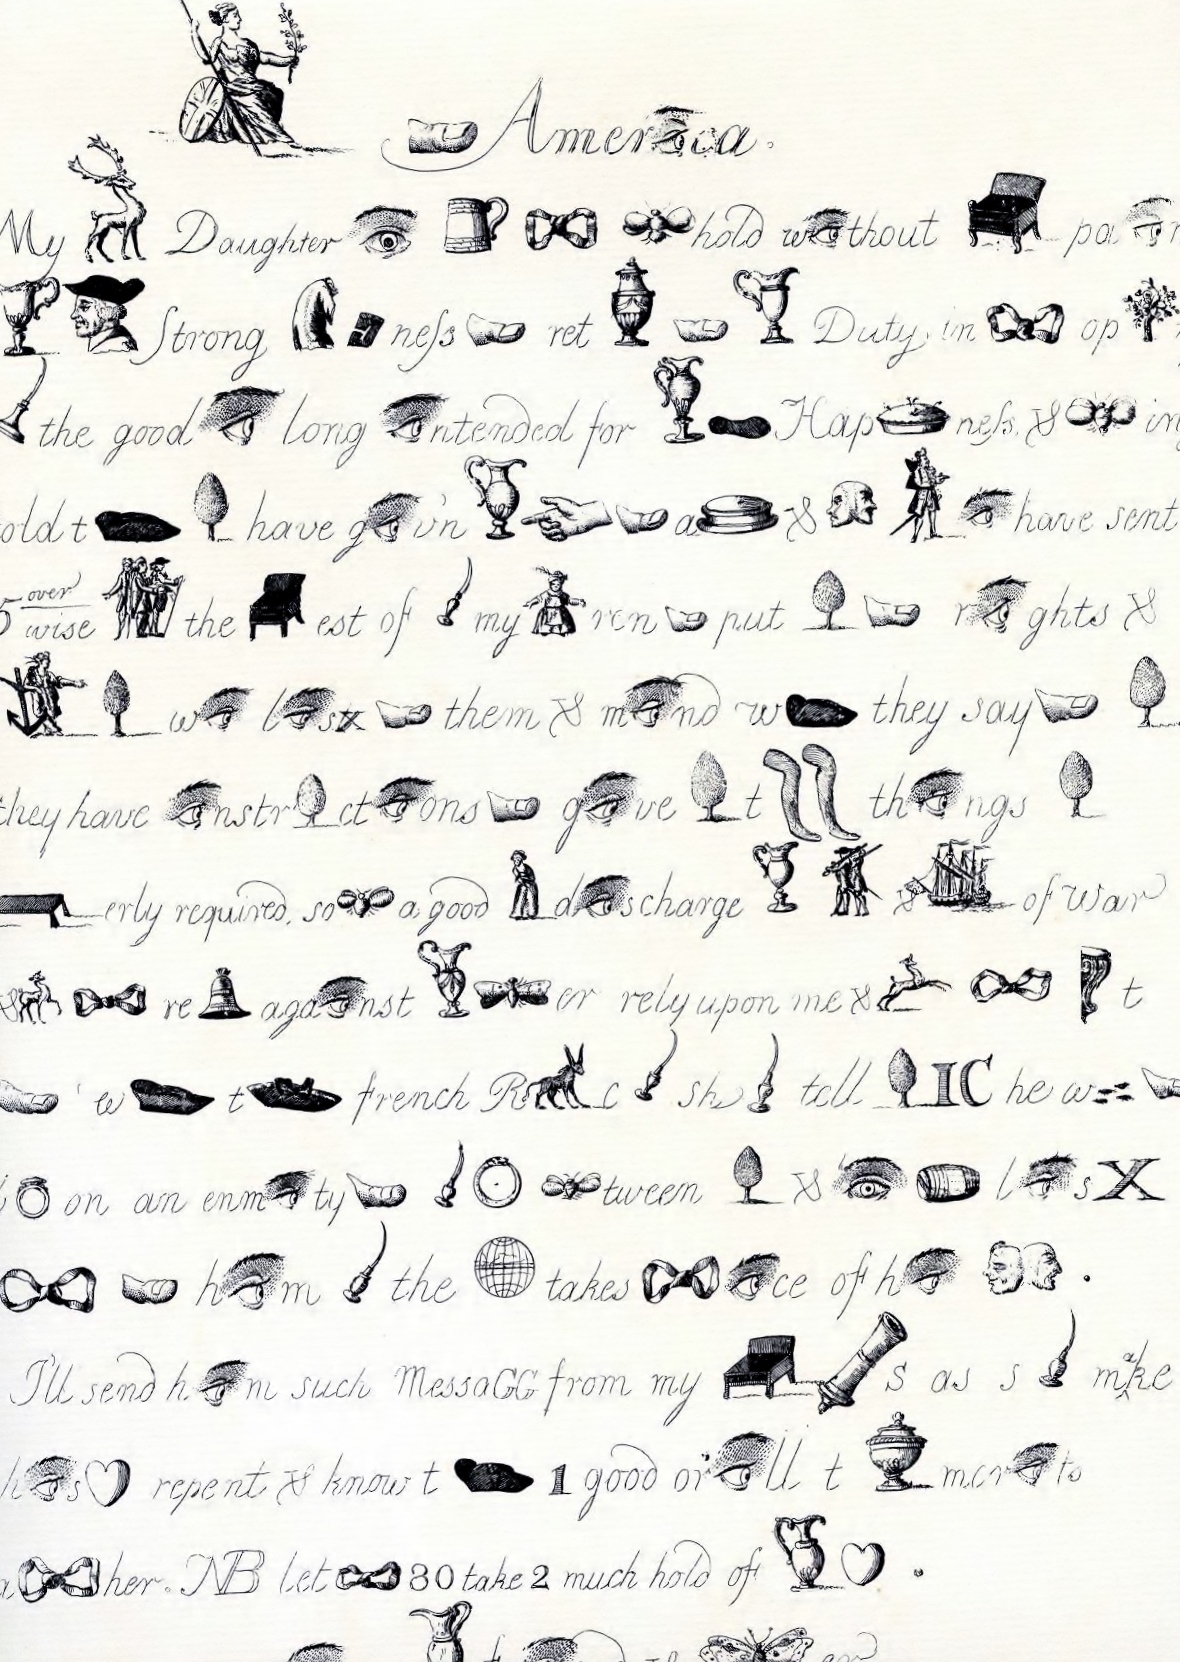 Amer ca.
My Daughter hold w thout pa
Strong neſs ret Duty in op
the good long ntended for Hap neſs. & in
old t have g v'n a & have sent
over
wise the est of my ren put r ghts &
w l st them & m nd w they say
they have nstr ct ons g ve t th ngs
erly required, so a good d scharge & of War
& re aga nst er rely upon me & t
w t french R c sh tell IC he w
on an enm ty tween & l s X
h m the takes ce of h .
I'll send h m such MessaGG from my s as s make
h s repent & know t 1 good or ll t mer ts
a her. NB let 80 take 2 much hold of .